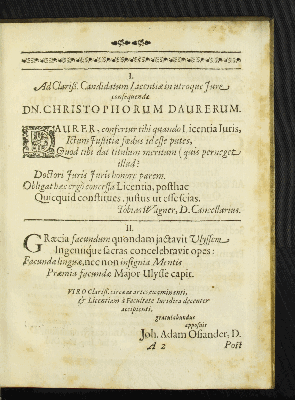 I.
Ad Clariss. Candidatum Licentiæ in utroque Jure
consequendæ
DN. CHRISTOPHORUM DAURERUM.
DAURER, confertur tibi quando Licentia Juris,
Ictum Justitiæ fœdus id esse putes,
Quod tibi dat titulum meritum (quis perneget
illud?
Doctori Juris Juris honore parem.
Obligat hæc ergò concessa Licentia, posthac
Quicquid constitues, justus ut esse scias.
Tobias Wagner, D. Cancellarius.
II.
GRæcia facundum quondam jactavit Ulyssem
Ingeniique sacras concelebravit opes:
Facundæ linguæ, nec non insignia Mentis
Præmia facundæ Major Ulysse capit.
VIRO Clariss. virtute et arte eminenti,
& Licentiam à Facultate Juridica decenter
accipienti,
gratulabundus
apposuit
Joh. Adam Osiander, D.
A 2 Post